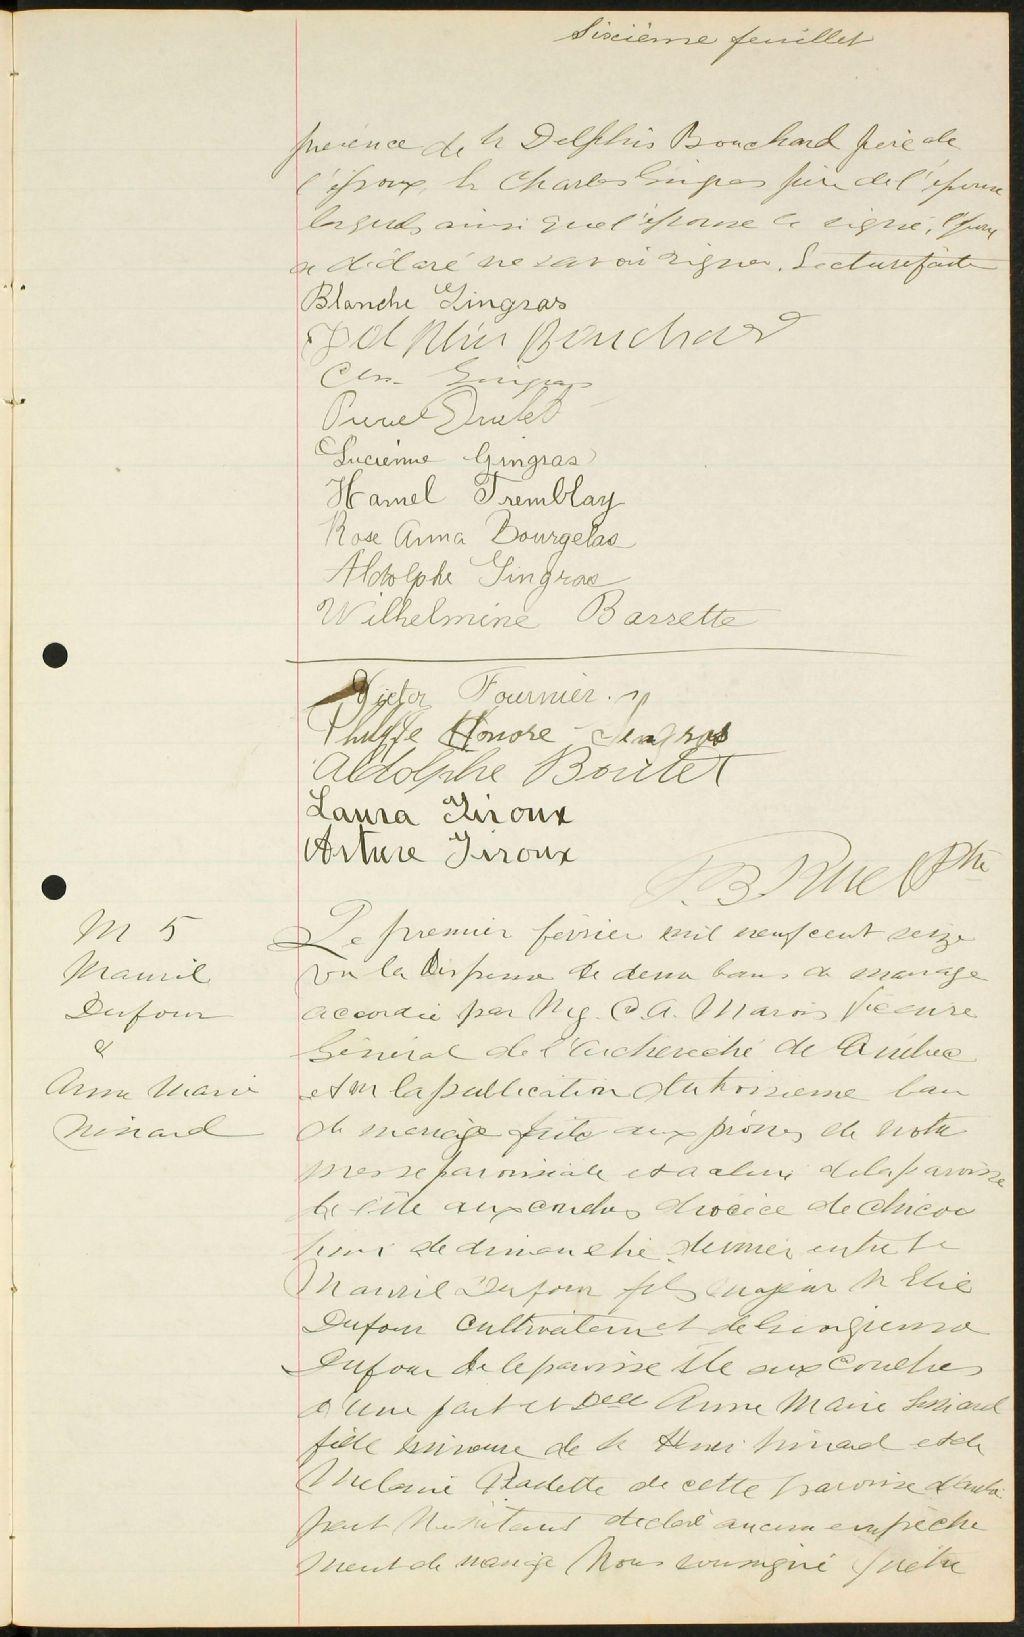 Sixième feuillet
présence de Sr Delphis Bouchard père de
l'époux, Sr Charles Gingras père de l'épouse
lesquels ainsi que l'épouse a signé, l'époux
a déclaré ne savoir signer. Lecture faite
Blanche Gingras
Delphis Bouchard
Chs Gingras
Drulet
Lucienne Gingras
Hamel Tremblay
Rose Anna Bourgelas
Aldolphe Gingras
Wilhelmine Barrette
Victor Fournier
Philippe Honore Gingras
Aldolphe Boutet
Laura Giroux
Arture Giroux
J. B. Ruel Ptre
M 5
Mauril
Dufour
&
Anne Marie
Simard
Le premier février mil neuf cent seize
vu la dispense de deux bans de mariage
accordée par Mg. C. A. Marois Vicaire
Général de l'archevêché de Québec
et vu la publication du troisième ban
de mariage faite aux prônes de notre
messe paroissiale et à celui de la paroisse
de l'île aux coudres diocèce de Chicou
timi de dimanche dernier entre Sr
Mauril Dufour fils majeur Sr Elie
Dufour cultivateur et de
Dufour de la paroisse Ile aux Coudres
d'une part et Delle Anne Marie Simard
fille mineure de Sr Henri Simard et de
Melanie de cette paroisse d'autre
part déclaré aucun empêche
ment de mariage Nous soussigné Prêtre